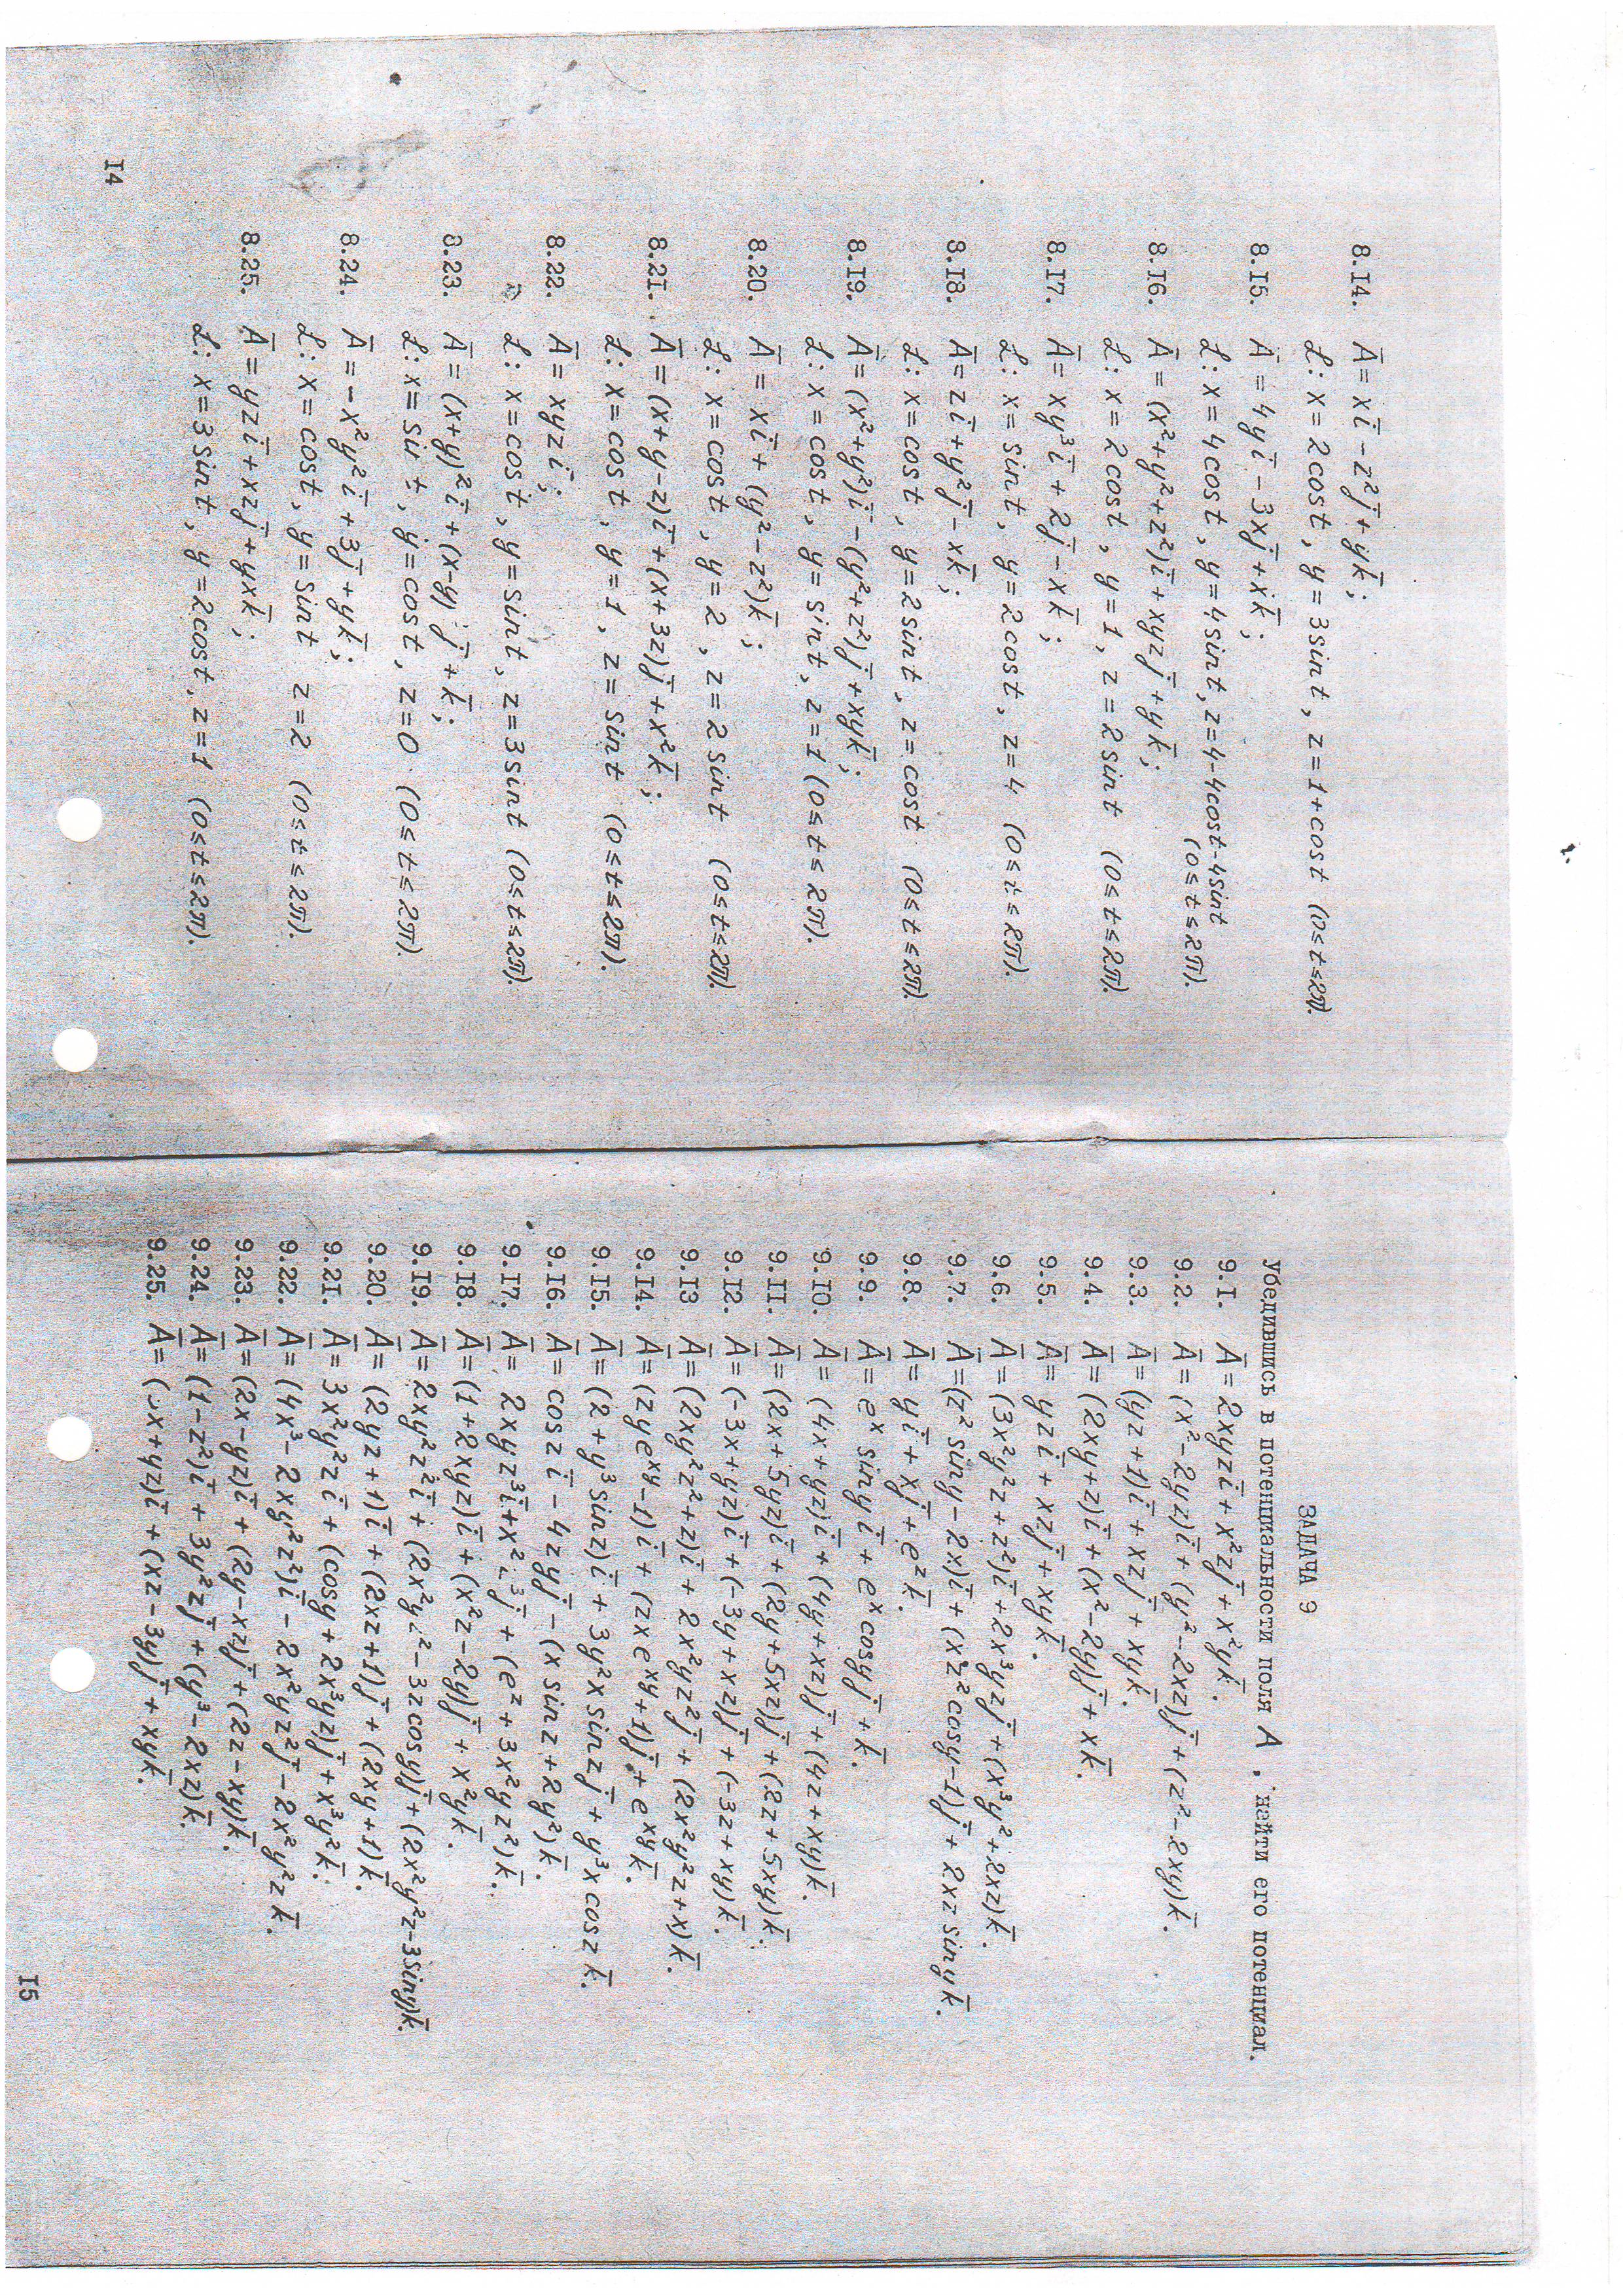 8.I4. A̅ = xi̅ - z²j̅ + yk̅;
ℒ: x = 2cost, y = 3sint, z = 1 + cost (0≤t≤2π).
8.I5. A̅ = 4yi̅ - 3xj̅ + xk̅;
ℒ: x = 4cost, y = 4sint, z = 4-4cost-4sint
(0≤t≤2π).
8.I6. A̅ = (x²+y²+z²)i̅ + xyzj̅ + yk̅;
ℒ: x = 2cost, y = 1, z = 2sint (0≤t≤2π).
8.I7. A̅ = xy³i̅ + 2j̅ - xk̅;
ℒ: x = sint, y = 2cost, z = 4 (0≤t≤2π).
8.I8. A̅ = zi̅ + y²j̅ - xk̅;
ℒ: x = cost, y = 2sint, z = cost (0≤t≤2π).
8.I9. A̅ = (x²+y²)i̅ - (y²+z²)j̅ + xyk̅;
ℒ: x = cost, y = sint, z = 1 (0≤t≤2π).
8.20. A̅ = xi̅ + (y²-z²)k̅;
ℒ: x = cost, y = 2, z = 2sint (0≤t≤2π).
8.2I. A̅ = (x+y-z)i̅ + (x+3z)j̅ + x²k̅;
ℒ: x = cost, y = 1, z = sint (0≤t≤2π).
8.22. A̅ = xyzi̅;
ℒ: x = cost, y = sint, z = 3sint (0≤t≤2π).
8.23. A̅ = (x+y)²i̅ + (x-y)j̅ + k̅;
ℒ: x = sint, y = cost, z = 0 (0≤t≤2π).
8.24. A̅ = -x²y²i̅ + 3j̅ + yk̅;
ℒ: x = cost, y = sint z = 2 (0≤t≤2π).
8.25. A̅ = yzi̅ + xzj̅ + yxk̅;
ℒ: x = 3sint, y = 2cost, z = 1 (0≤t≤2π).
I4
ЗАДАЧА 9
Убедившись в потенциальности поля A̅, найти его потенциал.
9.I. A̅ = 2xyzi̅ + x²zj̅ + x²yk̅.
9.2. A̅ = (x²-2yz)i̅ + (y²-2xz)j̅ + (z²-2xy)k̅.
9.3. A̅ = (yz+1)i̅ + xzj̅ + xyk̅.
9.4. A̅ = (2xy+z)i̅ + (x²-2y)j̅ + xk̅.
9.5. A̅ = yzi̅ + xzj̅ + xyk̅.
9.6. A̅ = (3x²y²z+z²)i̅ + 2x³yzj̅ + (x³y²+2xz)k̅.
9.7. A̅ = (z²siny-2x)i̅ + (xz²cosy-1)j̅ + 2xzsinyk̅.
9.8. A̅ = yi̅ + xj̅ + e^z k̅.
9.9. A̅ = e^x sinyi̅ + e^x cosyj̅ + k̅.
9.I0. A̅ = (4x+yz)i̅ + (4y+xz)j̅ + (4z+xy)k̅.
9.II. A̅ = (2x+5yz)i̅ + (2y+5xz)j̅ + (2z+5xy)k̅.
9.I2. A̅ = (-3x+yz)i̅ + (-3y+xz)j̅ + (-3z+xy)k̅.
9.I3 A̅ = (2xy²z²+z)i̅ + 2x²yz²j̅ + (2x²y²z+x)k̅.
9.I4. A̅ = (zye^xy-1)i̅ + (zxe^xy+1)j̅ + e^xy k̅.
9.I5. A̅ = (2+y³sinz)i̅ + 3y²xsinzj̅ + y³xcoszk̅.
9.I6. A̅ = coszi̅ - 4zyj̅ - (xsinz+2y²)k̅.
9.I7. A̅ = 2xyz³i̅ + x²z³j̅ + (e^z+3x²yz²)k̅.
9.I8. A̅ = (1+2xyz)i̅ + (x²z-2y)j̅ + x²yk̅.
9.I9. A̅ = 2xy²z²i̅ + (2x²yz²-3zcosy)j̅ + (2x²y²z-3siny)k̅.
9.20. A̅ = (2yz+1)i̅ + (2xz+1)j̅ + (2xy+1)k̅.
9.2I. A̅ = 3x²y²zi̅ + (cosy+2x³yz)j̅ + x³y²k̅.
9.22. A̅ = (4x³-2xy²z²)i̅ - 2x²yz²j̅ - 2x²y²zk̅.
9.23. A̅ = (2x-yz)i̅ + (2y-xz)j̅ + (2z-xy)k̅.
9.24. A̅ = (1-z²)i̅ + 3y²zj̅ + (y³-2xz)k̅.
9.25. A̅ = ( x+yz)i̅ + (xz-3y)j̅ + xyk̅.
I5